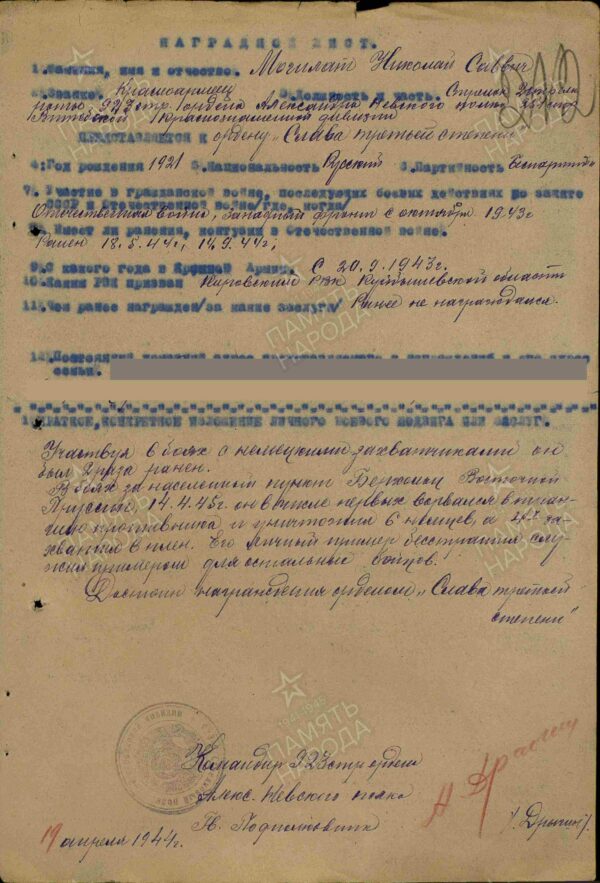 НАГРАДНОЙ ЛИСТ.
1. Фамилия, имя и отчество. Могилат Николай Саввич
2. Звание. Красноармеец 3. Должность и часть. Стрелок
927 стр. ордена Александра Невского полка 251 стр.
Витебской Краснознаменной дивизии
ПРЕДСТАВЛЯЕТСЯ К ордену "Слава третьей степени"
4. Год рождения 1921 5. Национальность Русский 6. Партийность Беспартийн
7. Участие в гражданской войне, последующих боевых действиях по защите
СССР и Отечественной войне /где, когда/
Отечественная война, Западный фронт с октября 1943г
8. Имеет ли ранения, контузии в Отечественной войне.
Ранен 18.5.44г, 14.9.44г,
9. С какого года в Красной Армии. С 20.9.1943г.
10. Каким РВК призван Кировский РВК Куйбышевской области
11. Чем ранее награжден /за какие заслуги/ Ранее не награждался.
12. Постоянный домашний адрес
семьи.
КРАТКОЕ, КОНКРЕТНОЕ ИЗЛОЖЕНИЕ ЛИЧНОГО БОЕВОГО ПОДВИГА ИЛИ ЗАСЛУГ.
Участвуя в боях с немецкими захватчиками он
был 2 раза ранен.
В боях за населенный пункт Восточной
Пруссии 14.4.45г. он в числе первых ворвался в тран-
шею противника и уничтожил 6 немцев, а 47 за-
хватил в плен. Его личный пример бесстрашия слу-
жил примером для остальных бойцов.
Достоин награждения орденом "Слава третьей
степени"
Командир 927 стр ордена
Алекс. Невского полка
Гв. Подполковник
19 апреля 1944г.
1941-1945
ПАМЯТЬ
НАРОДА